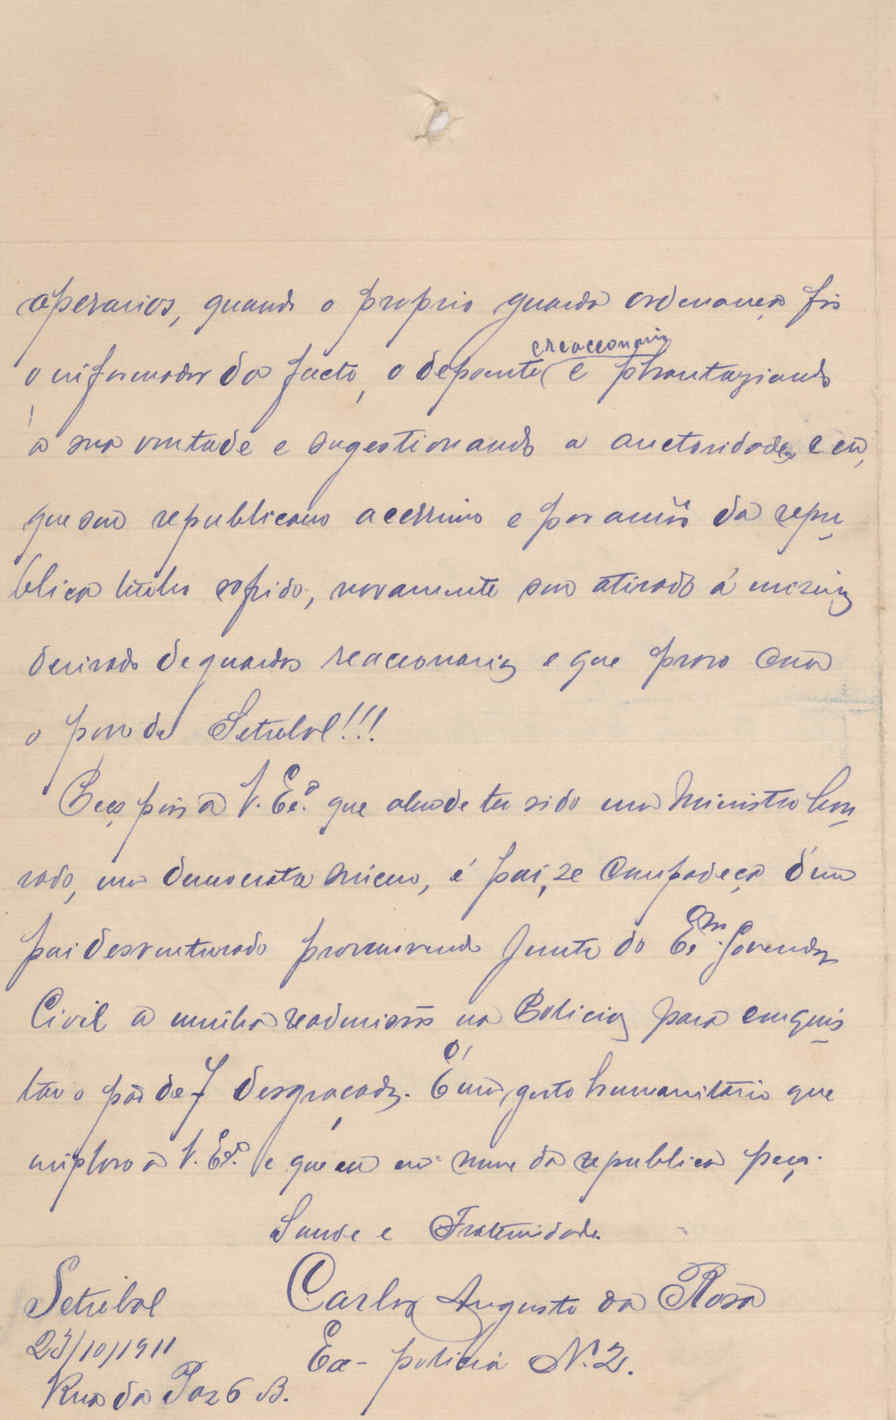 operarios, quando o proprio guarda ordenança foi
o informador do facto, o depoente (e reaccionario) e phantaziando
á sua vontade e sugestionando a auctoridade, e eu,
que sou republicano acerrimo e por amôr da repu
blica tenho sofrido, novamente sou atirado á mizeria
derivado de guardas reaccionarios e que prova com
o povo de Setubal!!!
Peço pois a V. Exª. que alem de ter sido um Ministro hon
rado, um democrata sincero, é pai, se compadeça d'um
pai desventurado promovendo junto do Exmº. Governador
Civil a minha readmissão na Policia para conquis
tar o pão de 7 desgraçados. É um gesto humanitario que
imploro a V. Exª. e que eu em nome da republica peço.
Saude e Fraternidade.
Setubal
Carlos Augusto da Rosa
23/10/1911
Ex-policia N. 2.
Rua da Paz 6 B.